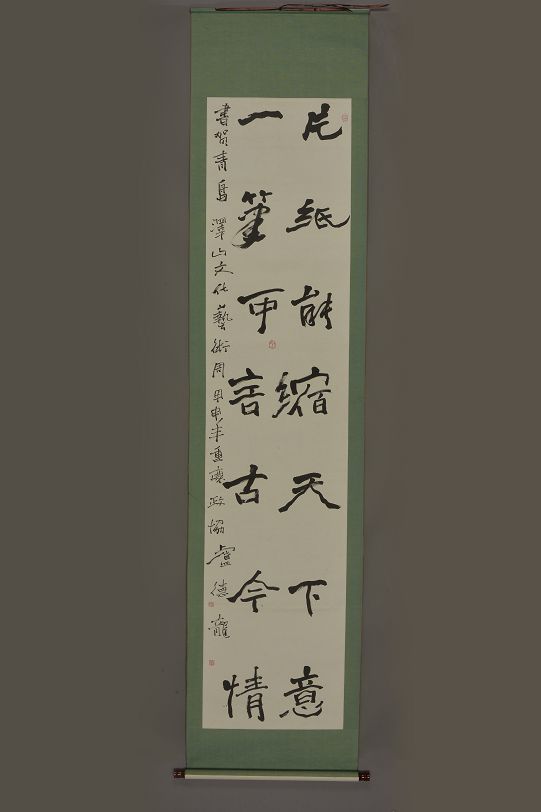 片紙能縮天下意
一筆可言古今情
書賀青島 澤山文化藝術周 甲申年重慶政協 盧德龍